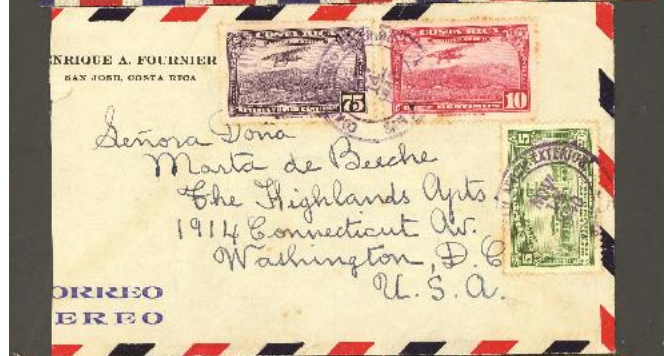 ENRIQUE A. FOURNIER
SAN JOSE, COSTA RICA
COSTA RICA
75
COSTA RICA
DIEZ CENTIMOS
10
Señora Doña
Marta de Beeche
The Highlands Apts.
1914 Connecticut Av.
Washington, D.C
U.S.A.
EXTERIOR
NOV
5
5
ORREO
EREO